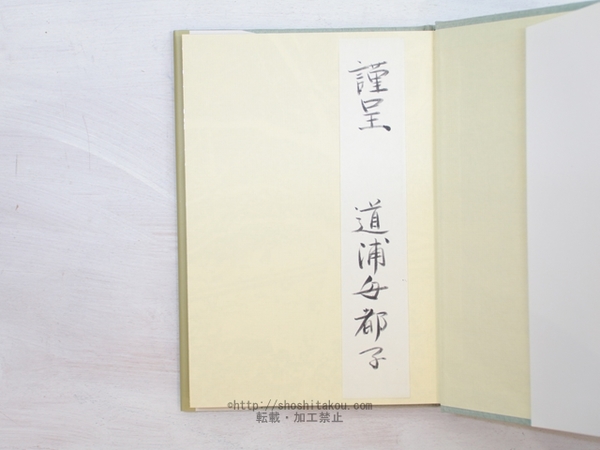 謹呈 道浦母都子
©http://shoshitakou.com
転載・加工禁止